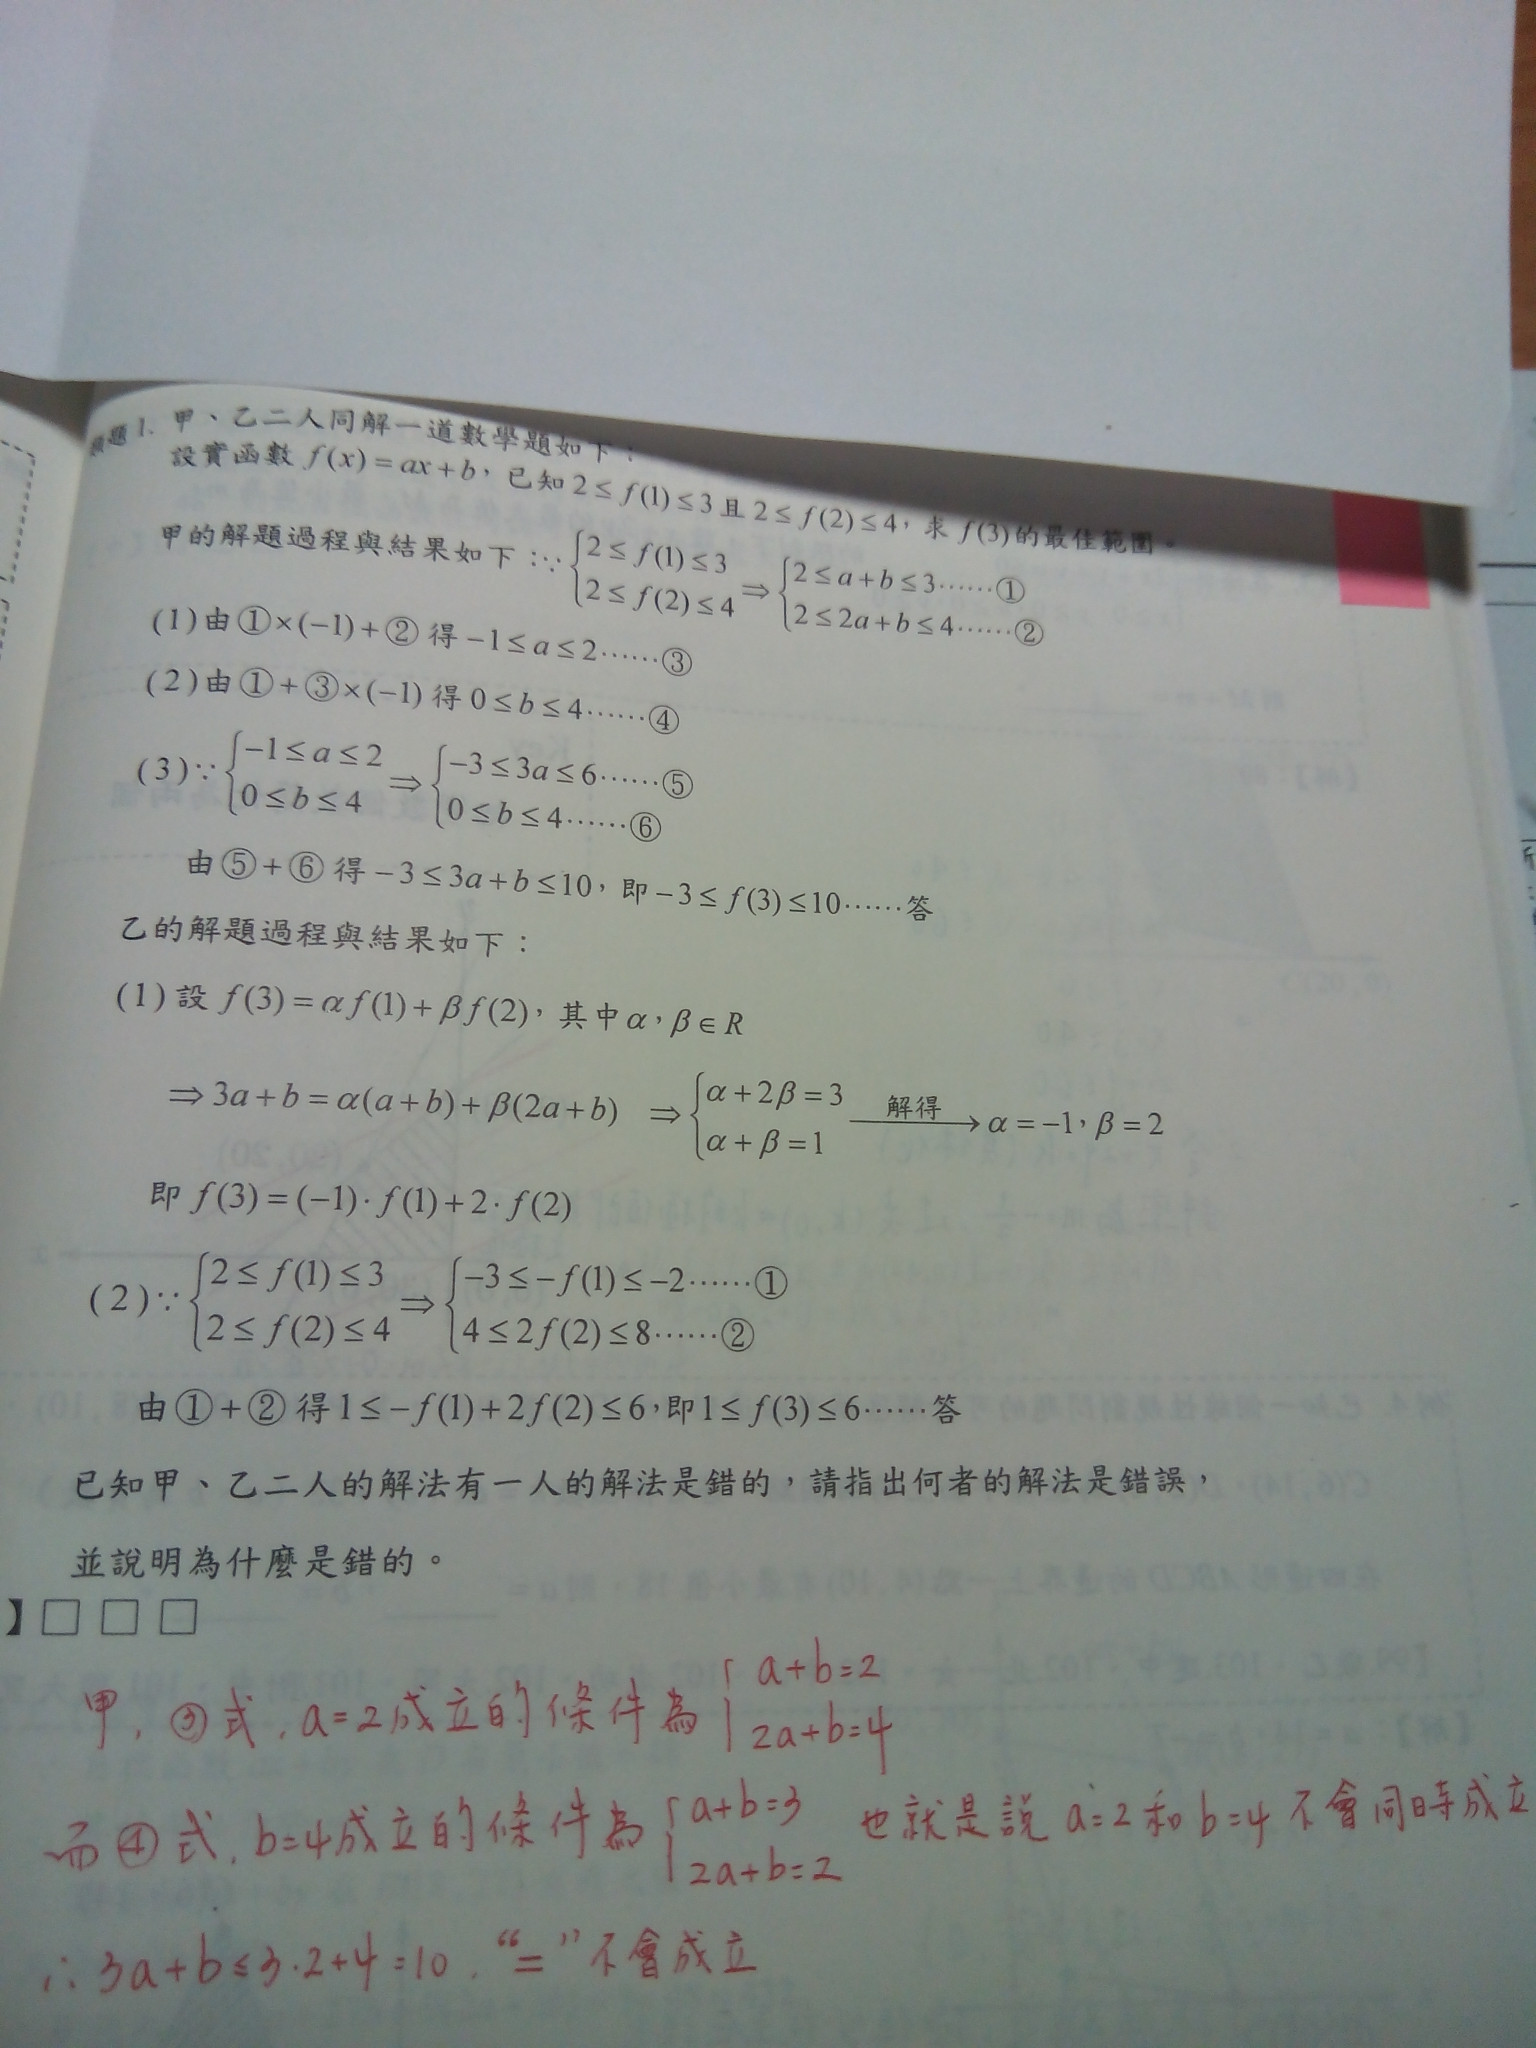 題1. 甲、乙二人同解一道數學題如下：
設實函數 f(x)=ax+b，已知 2≤f(1)≤3 且 2≤f(2)≤4，求 f(3) 的最佳範圍。
甲的解題過程與結果如下：∵{2≤f(1)≤3 2≤f(2)≤4 ⇒ {2≤a+b≤3……① 2≤2a+b≤4……②
(1)由①×(−1)+② 得 −1≤a≤2……③
(2)由①+③×(−1) 得 0≤b≤4……④
(3)∵{−1≤a≤2 0≤b≤4 ⇒ {−3≤3a≤6……⑤ 0≤b≤4……⑥
由⑤+⑥ 得 −3≤3a+b≤10，即 −3≤f(3)≤10……答
乙的解題過程與結果如下：
(1)設 f(3)=αf(1)+βf(2)，其中α，β∈R
⇒3a+b=α(a+b)+β(2a+b) ⇒{α+2β=3 α+β=1 解得→ α=−1，β=2
即 f(3)=(−1)·f(1)+2·f(2)
(2)∵{2≤f(1)≤3 2≤f(2)≤4 ⇒ {−3≤−f(1)≤−2……① 4≤2f(2)≤8……②
由①+② 得 1≤−f(1)+2f(2)≤6，即 1≤f(3)≤6……答
已知甲、乙二人的解法有一人的解法是錯的，請指出何者的解法是錯誤，
並說明為什麼是錯的。
】□ □ □
甲，③式，a=2成立的條件為{a+b=2 2a+b=4
而④式，b=4成立的條件為{a+b=3 2a+b=2 也就是說 a=2 和 b=4 不會同時成立
∴3a+b≤3·2+4=10，“=”不會成立